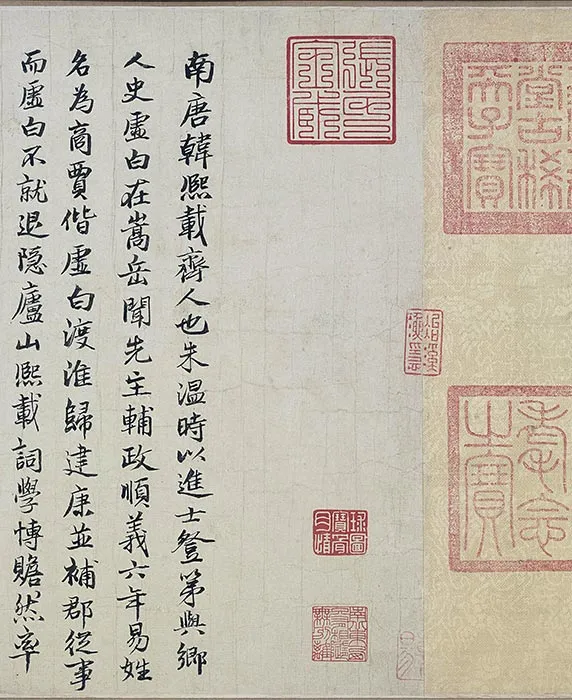 堂古稀
天子寶
耄念
之寶
南唐韓熙載齊人也朱温時以進士登第與鄉
人史虛白在嵩岳聞先主輔政順義六年易姓
名為商賈偕虛白渡淮歸建康並補郡從事
而虛白不就退隱廬山熙載詞學博贍然率